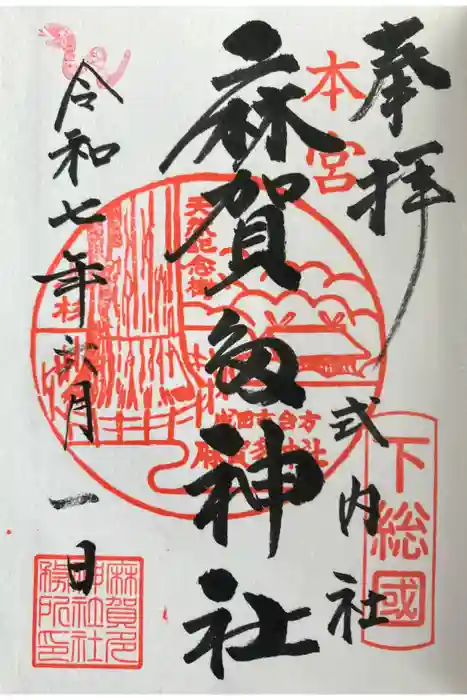 奉拝
式内社
下総國
本宮
麻賀多神社
天然記念樹
大杉
成田市台方
麻賀多神社
令和七年六月一日
麻賀多
神社社
務所印